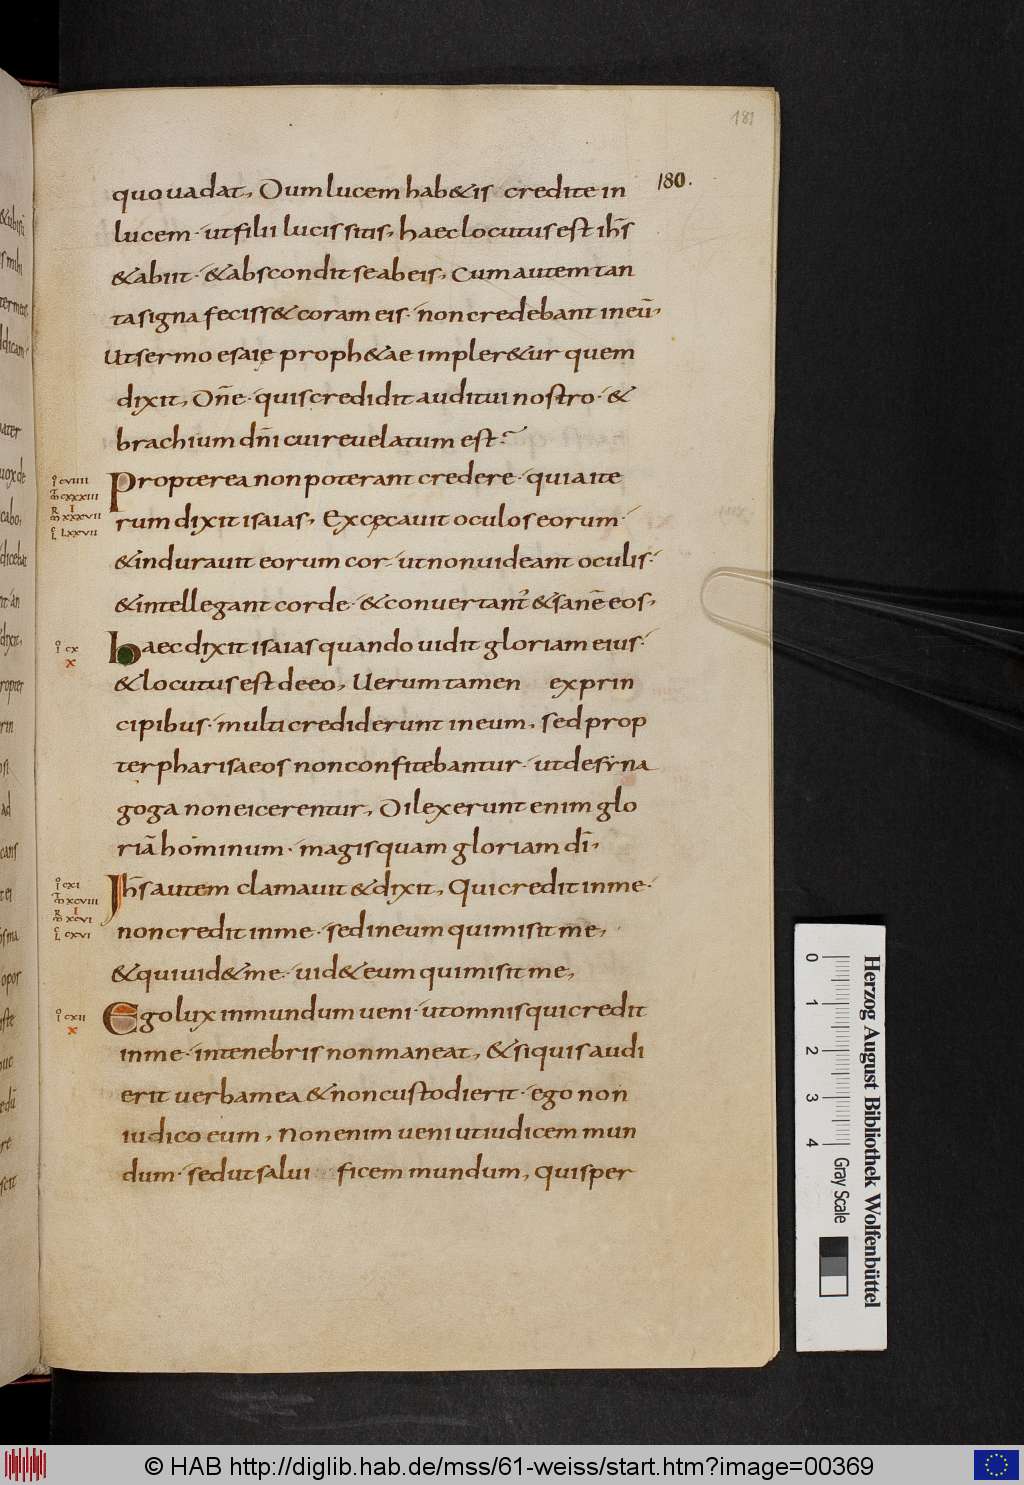 181
180.
quo uadat, Dum lucem hab&is credite in
lucem· ut filii lucis sitis, haec locutus est ihs̄
& abiit· & abscondit se ab eis, Cum autem tan
ta signa feciss& coram eis· non credebant in eū,
Ut sermo esaię proph&ae impler&ur quem
dixit, Dn̄e· quis credidit auditui nostro· &
brachium dn̄i cui reuelatum est?
Propterea non poterant credere· quia ite
rum dixit isaias, Excęcauit oculos eorum·
& indurauit eorum cor· ut non uideant oculis·
& intellegant corde· & conuertant᷒ & sanē eos,
haec dixit isaias quando uidit gloriam eius·
& locutus est de eo, Uerumtamen ex prin
cipibus· multi crediderunt in eum, sed prop
ter pharisaeos non confitebantur· ut de syna
goga non eicerentur, Dilexerunt enim glo
riā hominum· magis quam gloriam dī,
Ihs̄ autem clamauit & dixit, Qui credit in me·
non credit in me· sed in eum qui misit me,
& qui uid& me· uid& eum qui misit me,
Ego lux in mundum ueni· ut omnis qui credit
in me· in tenebris non maneat, & si quis audi
erit uerba mea & non custodierit· ego non
iudico eum, Non enim ueni ut iudicem mun
dum· sed ut salui ficem mundum, Qui sper
cviiii
cxxxiii
xxxvii
lxxvii
cx
x
cxi
xcviii
xcvi
cxvi
cxii
x
0 1 2 3 4
Gray Scale
Herzog August Bibliothek Wolfenbüttel
© HAB http://diglib.hab.de/mss/61-weiss/start.htm?image=00369